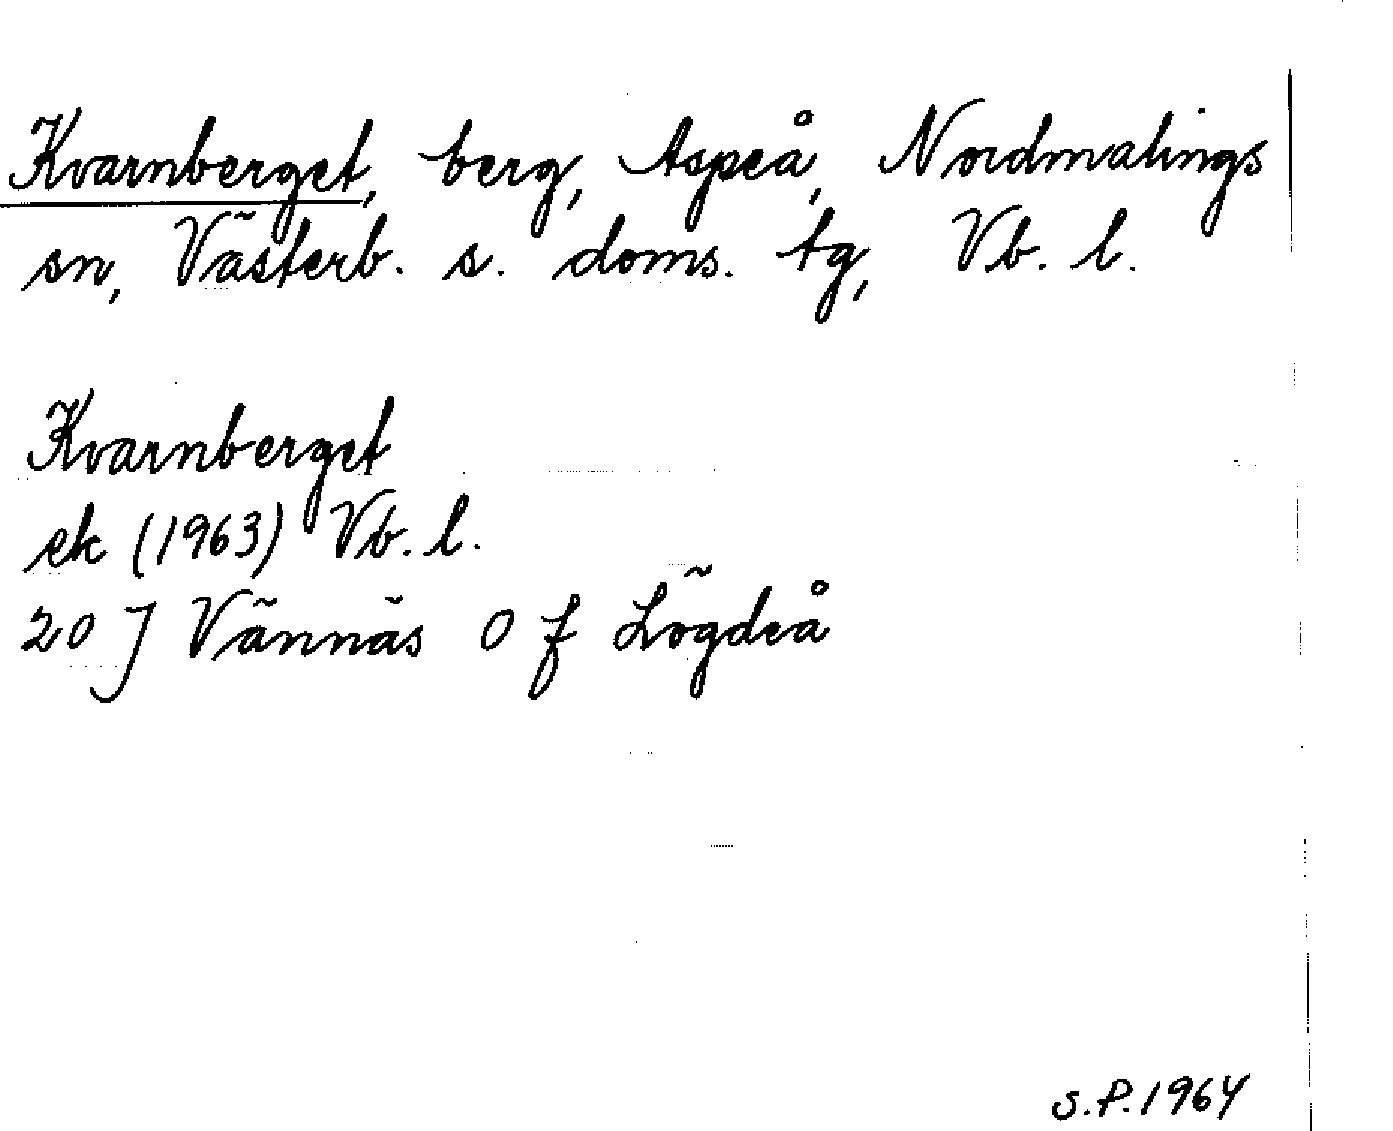 Kvarnberget, berg, Aspeå, Nordmalings
sn, Västerb. s. doms. tg, Vb. l.
Kvarnberget
ek (1963) Vb. l.
20 J Vännäs 0 f Lögdeå
S.P. 1964